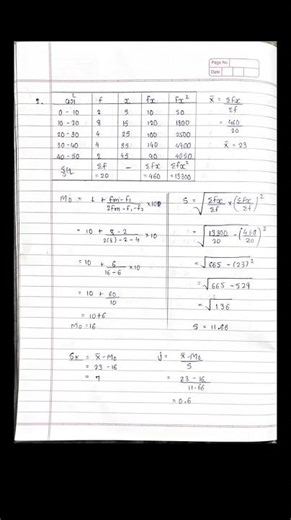 Page No.
Date
2. CI f x fx fx²
0 - 10 2 5 10 50
10 - 20 8 15 120 1800
20 - 30 4 25 100 2500
30 - 40 4 35 140 4900
40 - 50 2 45 90 4050
Σf = 20 — Σfx = 460 Σfx² = 13300
x̄ = Σfx / Σf
= 460 / 20
x̄ = 23
M₀ = l + fm - f₁ / 2fm - f₁ - f₂ × 100
= 10 + 8 - 2 / 2(8) - 2 - 4 × 10
= 10 + 6 / 16 - 6 × 10
= 10 + 60 / 10
= 10 + 6
M₀ = 16
S = √ Σfx² / Σf - (Σfx / Σf)²
= √ 13300 / 20 - (460 / 20)²
= √ 665 - (23)²
= √ 665 - 529
= √ 136
S = 11.66
Sk = x̄ - M₀
= 23 - 16
= 7
j = x̄ - M₀ / S
= 23 - 16 / 11.66
= 0.6